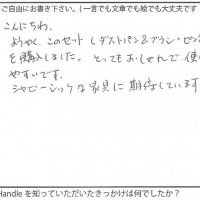 ご自由にお書き下さい。(一言でも文章でも絵でも大丈夫です
こんにちわ。
ようやく、このセット(ダストパン&ブラシ・ピン
を購入しました。とってもおしゃれで使い
やすいです。
シャビーシックな家具に期待しています
Handleを知っていただいたきっかけは何でしたか?